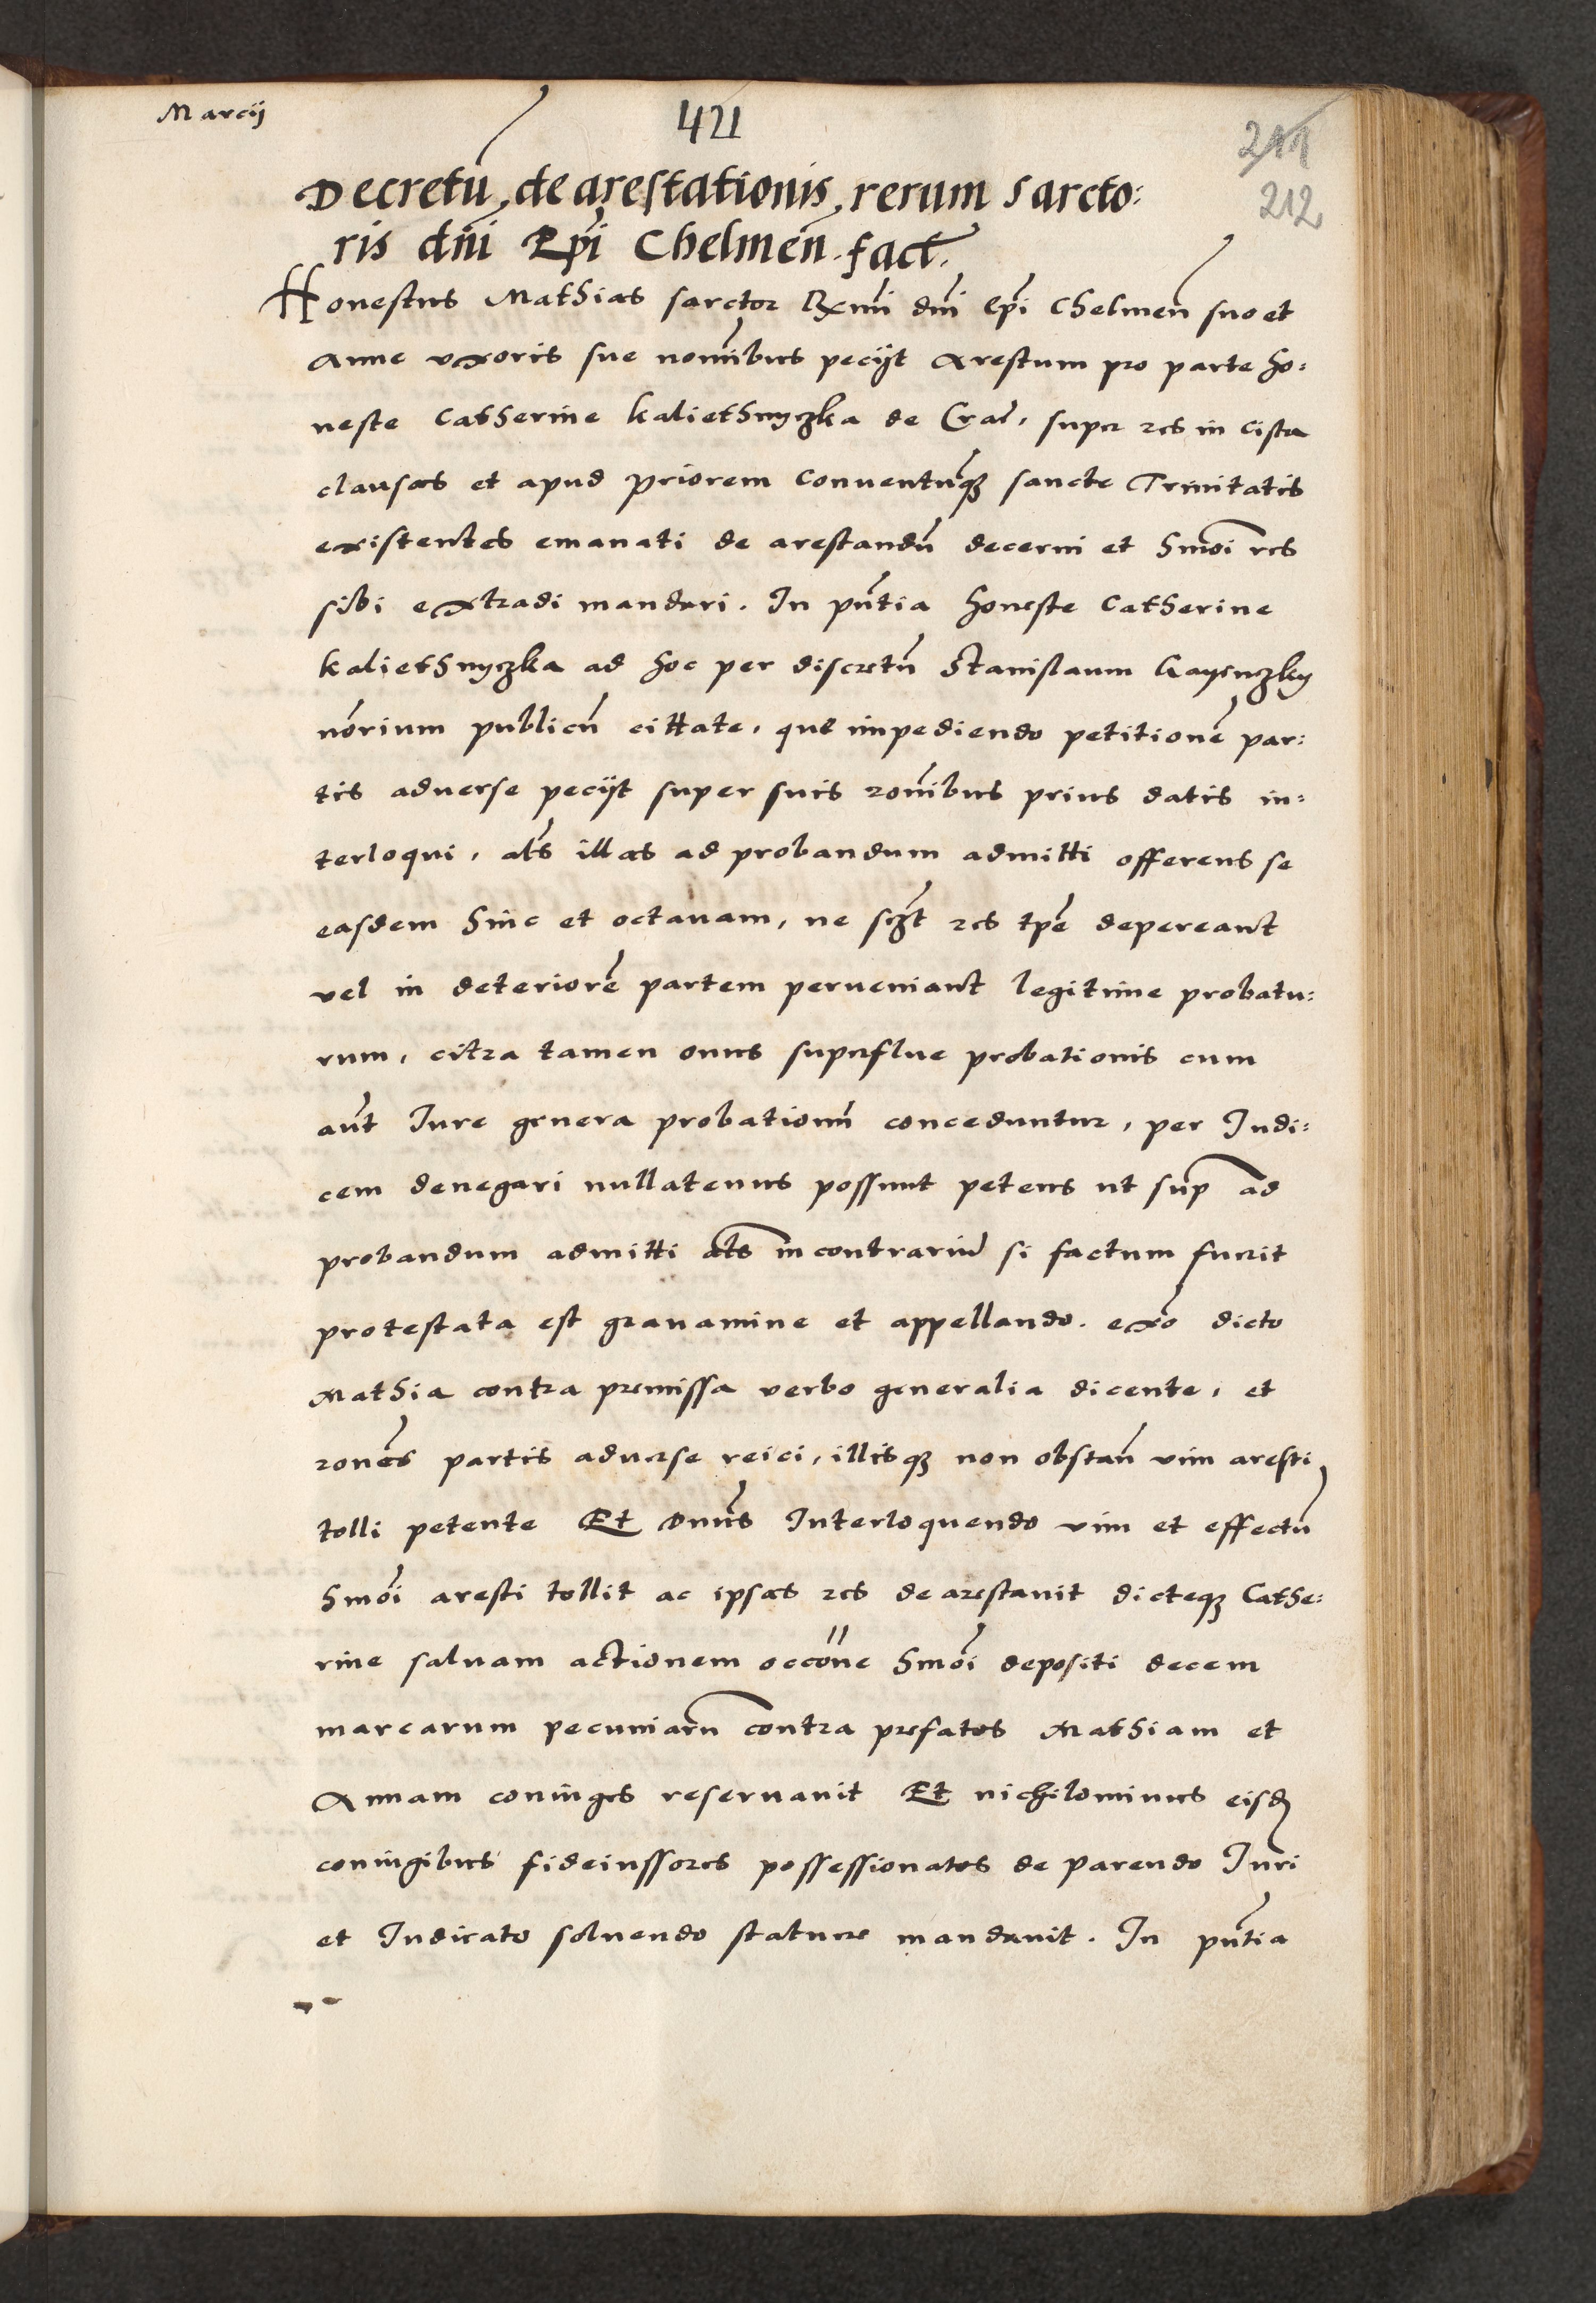 Marcij
421
211
212
Decretũ, de arestationis, rerum sarcto:
ris dñi Epĩ Chelmeñ. fact.
Honestus Mathias sarctor Rxmi dñi Epĩ Chelmeñ suo et
Anne uxoris sue nomĩbus pecijt Arestum pro parte ho:
neste Catherine kaliethnyczka de Crac̃, super res in cista
clausas et apud priorem Conuentũq; sancte Trinitatis
existentes emanati de arestandũ decerni et hmõi res
sibi extradi mandari. In pñtia honeste Catherine
kaliethnyczka ad hoc per discretũ Stanislaum
nõrium publicũ cittate, que impediendo petitionẽ par:
tis aduerse pecijt super suis rõnibus prius datis in:
terloqui, als̃ illas ad probandum admitti offerens se
easdem hinc et octauam, ne sc̃zt res tp̃e depereant
vel in deteriorẽ partem perueniant legitime probatu:
rum, citra tamen onus superflue probationis cum
aũt Iure genera probationũ conceduntur, per Iudi:
cem denegari nullatenus possunt petens ut sup̃ ad
probandum admitti als̃ in contrariũ si factum fuerit
protestata est grauamine et appellando. exõ dicto
Mathia contra premissa verbo generalia dicente, et
rõnes partis aduerse reici, illisq; non obstañ vim aresti
tolli petente Et Dñus Interloquendo vim et effectũ
hmõi aresti tollit ac ipsas res de arestauit dicteq; Cathe:
rine saluam actionem occõne hmõi depositi decem
marcarum pecuniarũ contra prefatos Mathiam et
Annam coniuges reseruauit Et nichilominus eisd̃
coniugibus fideiussores possessionatos de parendo Iuri
et Iudicato soluendo statuere mandauit. In pñtia